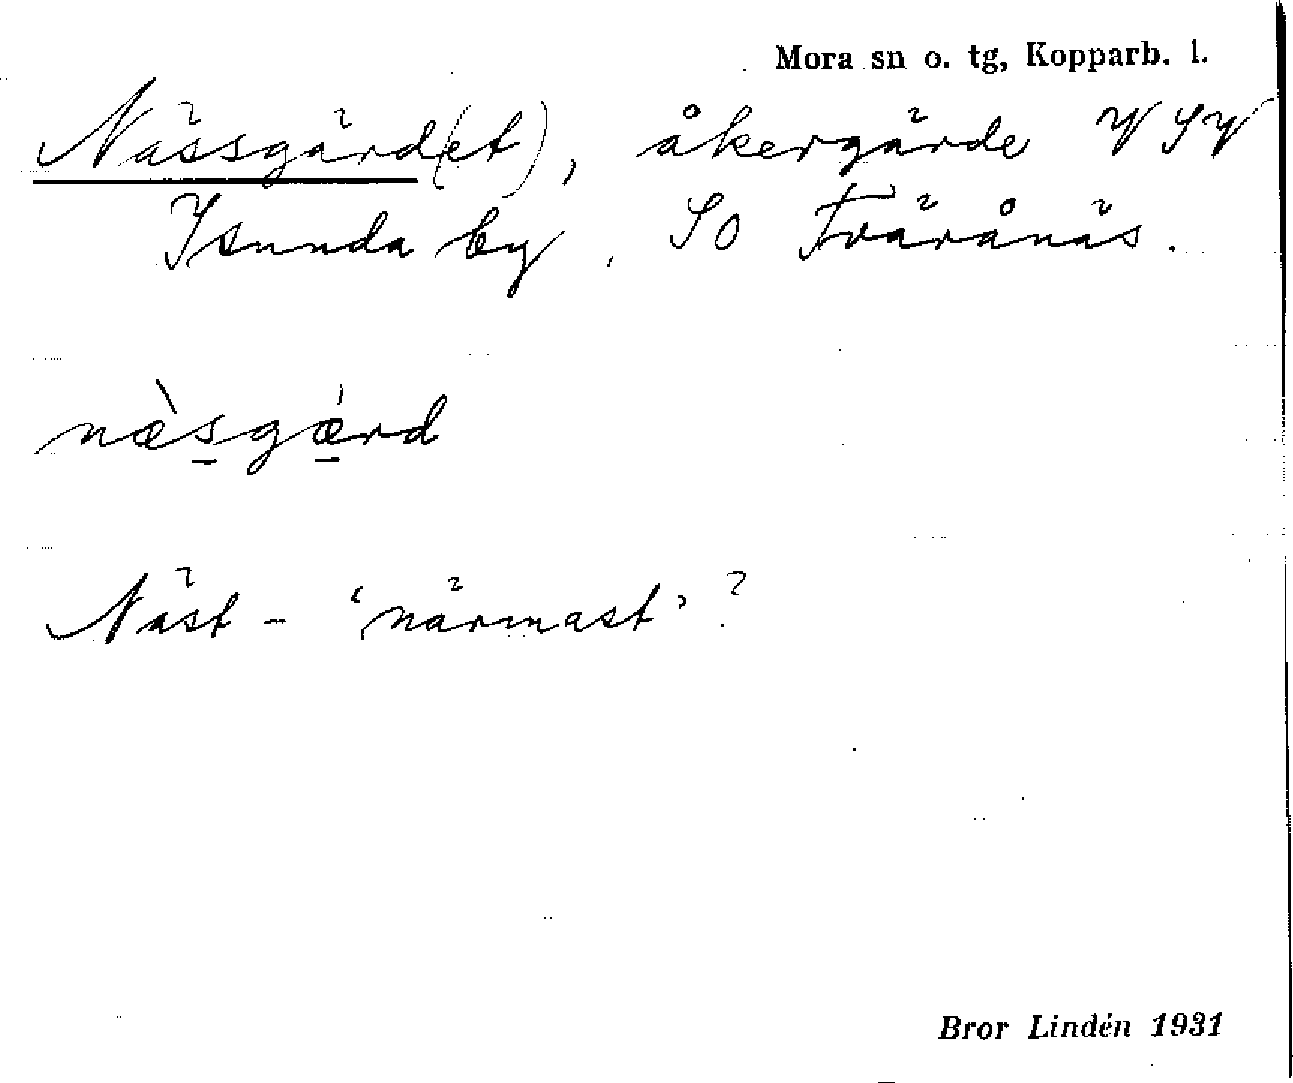 Mora sn o. tg, Kopparb. l.
Nässgärd(et), åkergärde V SV
Isunda by, SO Tväránäs.
næ̀s̠gǽ̠rd
Näst- 'närmast'?
Bror Lindén 1931